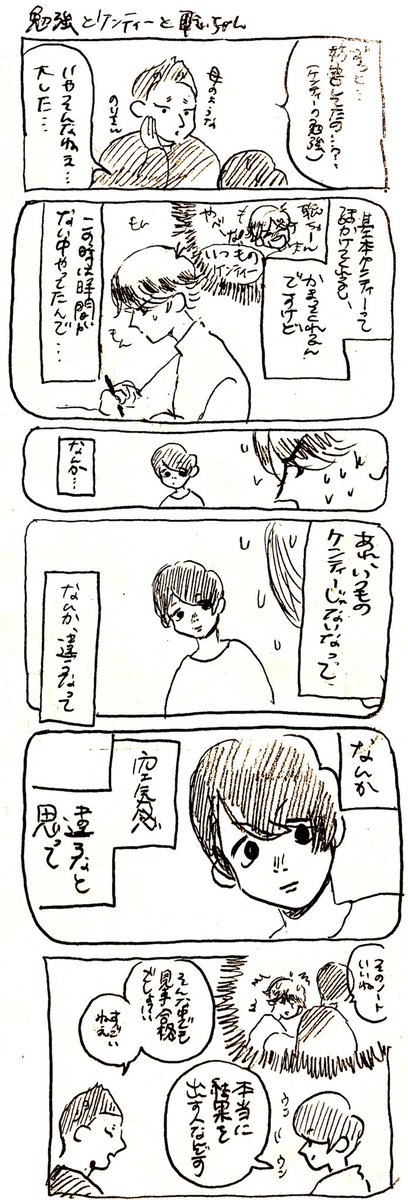 勉強とケンティーと聡ちゃん
ずっと…
妨害してたの…?
(ケンティーの勉強)
母のような
のりさん
いやそんなねぇ…
大した…
基本ケンティーって
話かけても、
かまってくれるん
ですけど
聡ちゃーん
いつもの
ケンティー
この時は時間が
ない中やってたんで…
なんか…
あれ、いつもの
ケンティーじゃないなって、
なんか、違うなって
なんか
空気感
違うなと
思って
そのノート
いいね
そんな中でも
見事合格
でしょ?
すごい
ねえ
本当に
結果を
出す人なんです
ウン
ウン